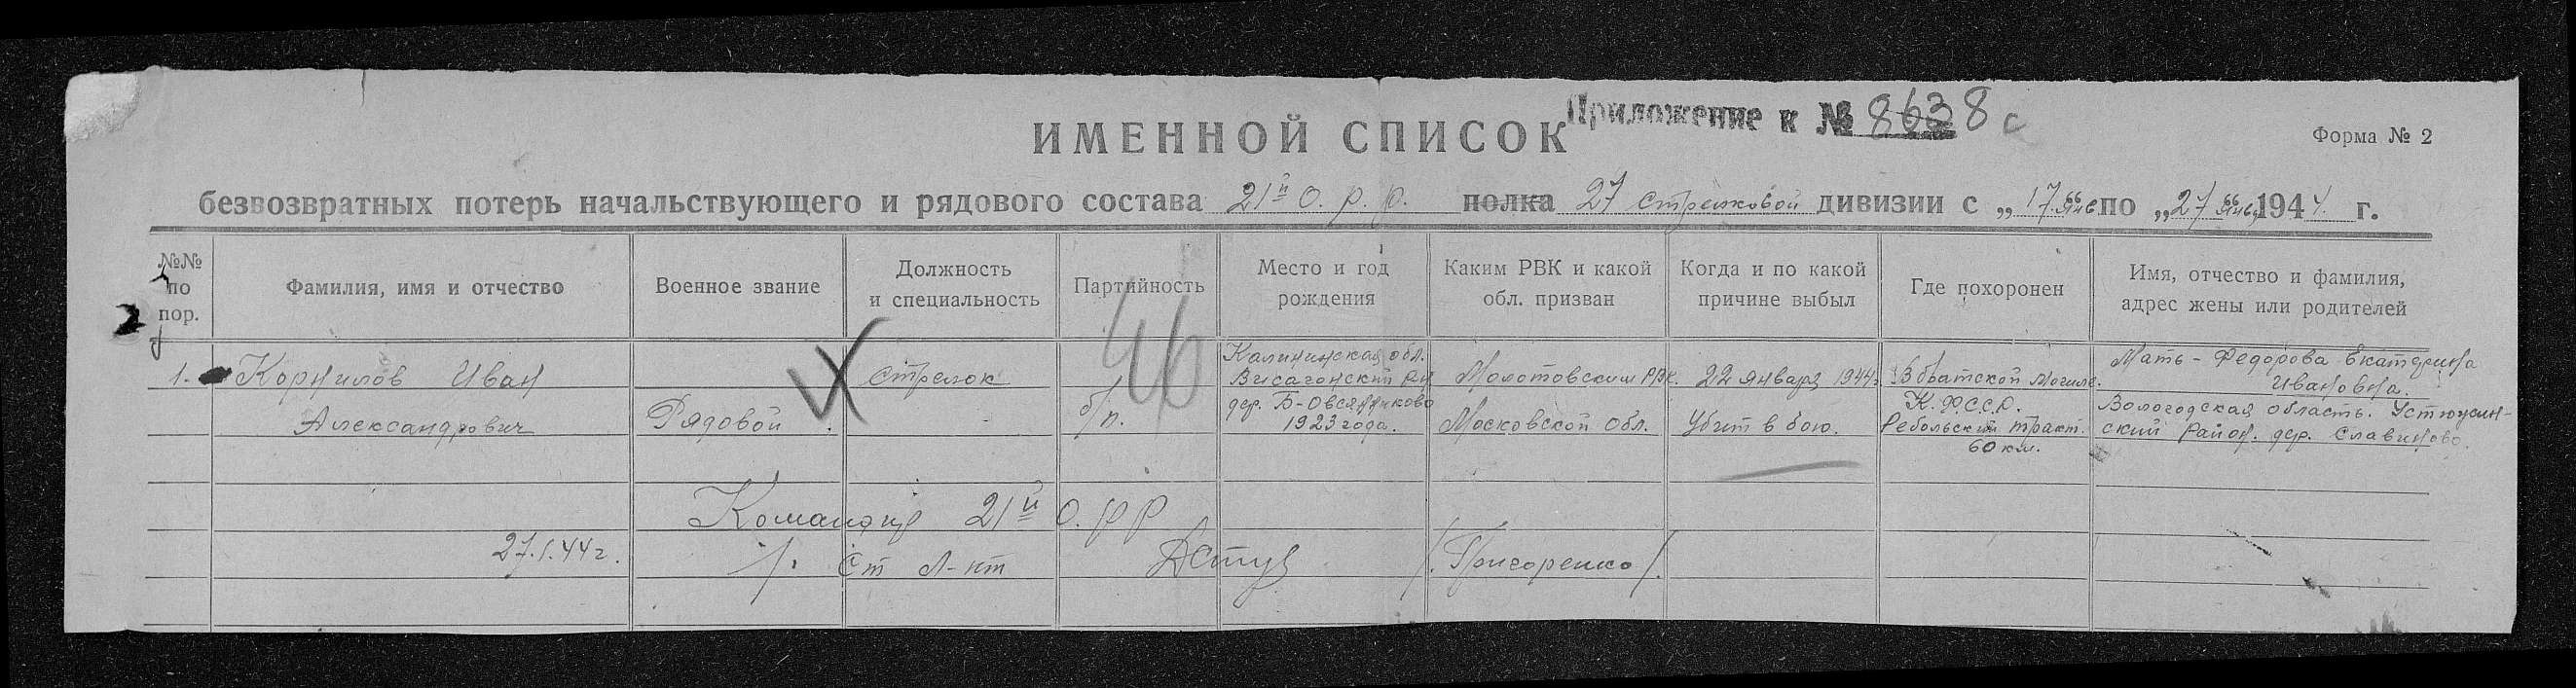 Приложение к № 8638 с
ИМЕННОЙ СПИСОК
Форма № 2
безвозвратных потерь начальствующего и рядового состава 21й О. р. р. полка 27 стрелковой дивизии с „17" янв. по „27" янв. 1944 г.
№№ по пор.
Фамилия, имя и отчество
Военное звание
Должность и специальность
Партийность
Место и год рождения
Каким РВК и какой обл. призван
Когда и по какой причине выбыл
Где похоронен
Имя, отчество и фамилия, адрес жены или родителей
46
1.
Корнилов Иван
Александрович
Рядовой
стрелок
б/п.
Калининская обл.
дер. Б-Овсянниково
1923 года.
Молотовским РВК.
Московской обл.
22 января 1944г.
Убит в бою.
В братской могиле.
К.Ф.С.С.Р.
Ребольский тракт.
60 км.
Мать - Федорова Екатерина
Ивановна.
Вологодская область. Устюжин-
ский район. дер. Славиново.
Командир 21й О. РР
27.1.44г.
Ст Л-нт
/Григоренко/.